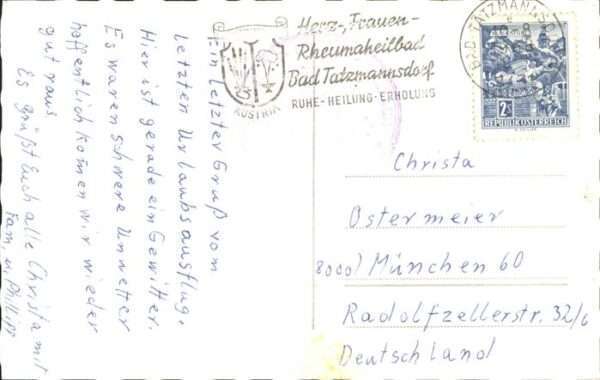 Herz-, Frauen-
Rheumaheilbad
Bad Tatzmannsdorf
RUHE - HEILUNG - ERHOLUNG
AUSTRIA
BAD TATZMANNS
2S
REPUBLIK ÖSTERREICH
Ein letzter Gruß vom
Letzten Urlaubsausflug.
Hier ist gerade ein Gewitter.
Es waren schwere Unwetter
hoffentlich kommen wir wieder
gut raus
Es grüßt Euch alle Christa mit
Fam. u.
Christa
Ostermeier
8000 München 60
Radolfzellerstr. 32/6
Deutschland